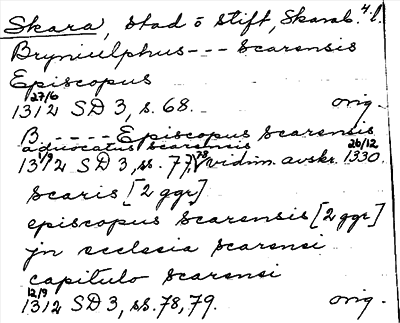 Skara, stad o stift, Skarab. l.
Bryniulphus - - - scarensis
Episcopus
27/6
1312 SD 3, s. 68. orig.
B. - - - - - Episcopus scarensis
aduocatus scarensis
1/9 26/12
1312 SD 3, ss. 77, 78 vidim. avskr. 1330.
scaris [2 ggr]
episcopus scarensis [2 ggr]
jn ecclesia scarensi
capitulo scarensi
12/9
1312 SD 3, ss. 78, 79. orig.